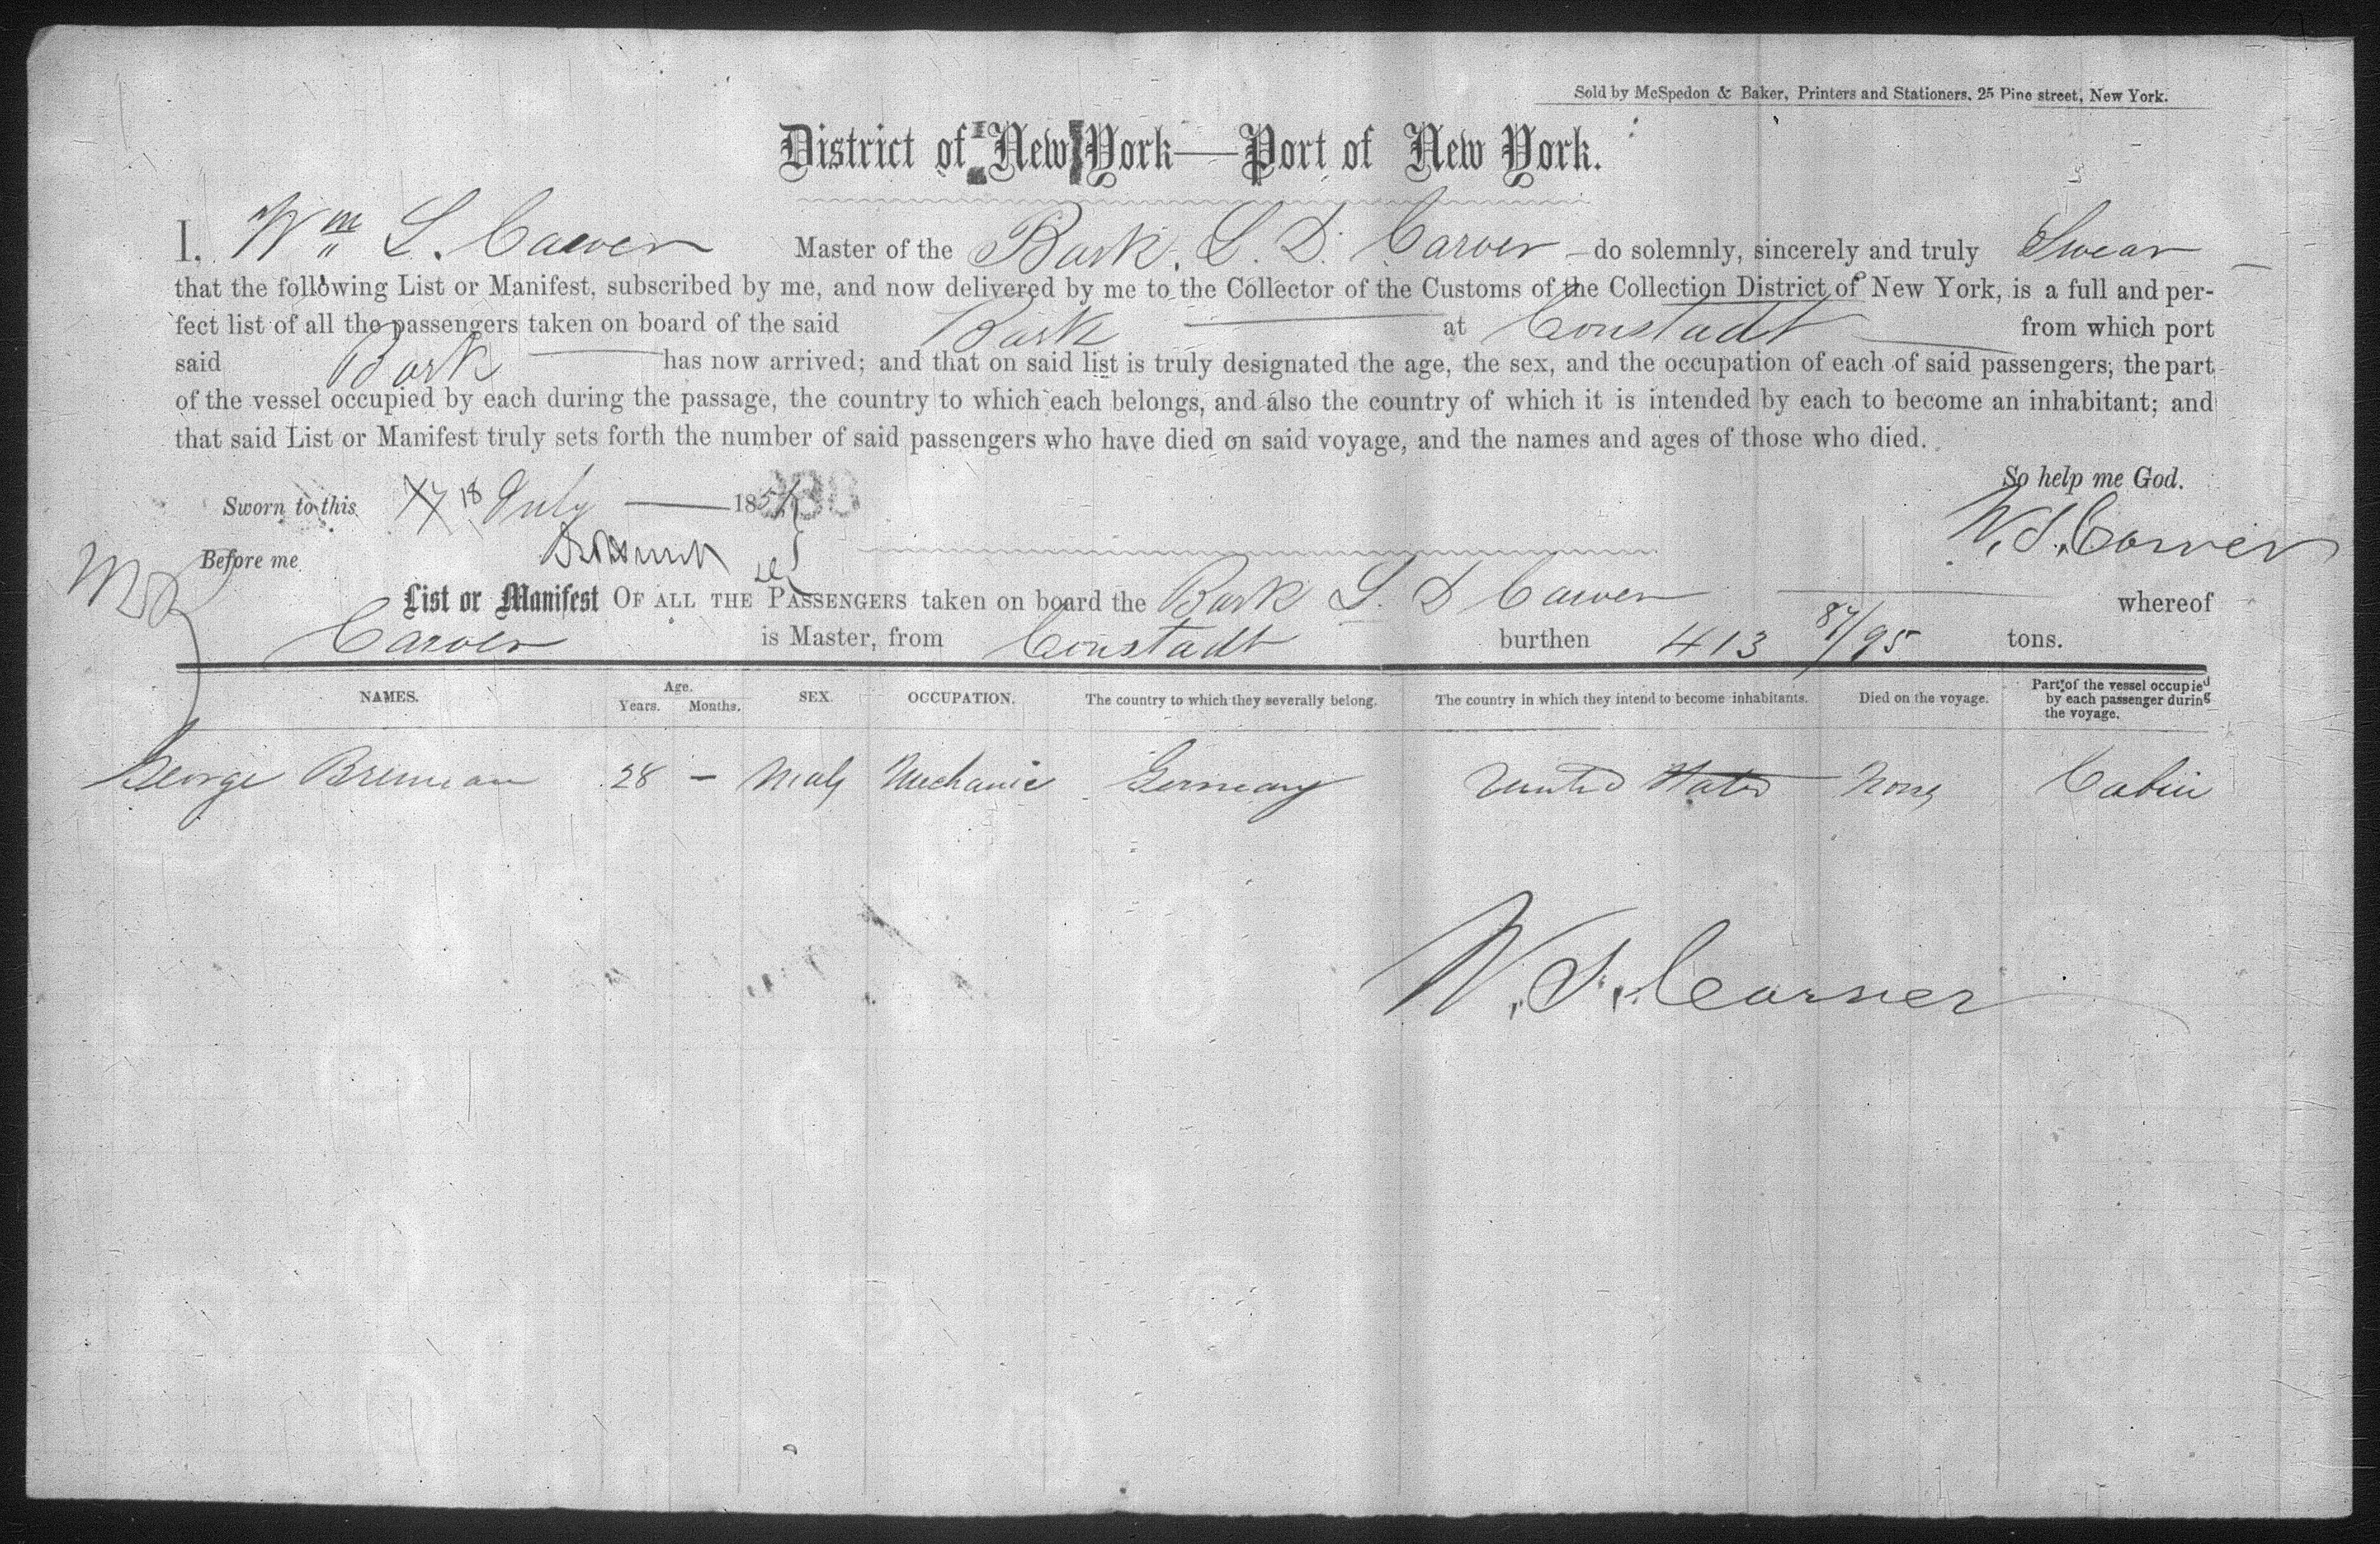 Sold by McSpedon & Baker, Printers and Stationers, 25 Pine street, New York.
District of New York—Port of New York.
I, Wm L. Carver Master of the Bark, L. D. Carver do solemnly, sincerely and truly Swear
that the following List or Manifest, subscribed by me, and now delivered by me to the Collector of the Customs of the Collection District of New York, is a full and per-
fect list of all the passengers taken on board of the said Bark at Constadt from which port
said Bark has now arrived; and that on said list is truly designated the age, the sex, and the occupation of each of said passengers; the part
of the vessel occupied by each during the passage, the country to which each belongs, and also the country of which it is intended by each to become an inhabitant; and
that said List or Manifest truly sets forth the number of said passengers who have died on said voyage, and the names and ages of those who died.
So help me God.
Sworn to this 18 July 185
W. S. Carver
Before me
List or Manifest OF ALL THE PASSENGERS taken on board the Bark L. D Carver whereof
Carver is Master, from Constadt burthen 413 87/95 tons.
NAMES. Age. Years. Months. SEX. OCCUPATION. The country to which they severally belong. The country in which they intend to become inhabitants. Died on the voyage. Part of the vessel occupied by each passenger during the voyage.
George Breman 28 — Male Mechanic Germany United States None Cabin
W. S. Carver